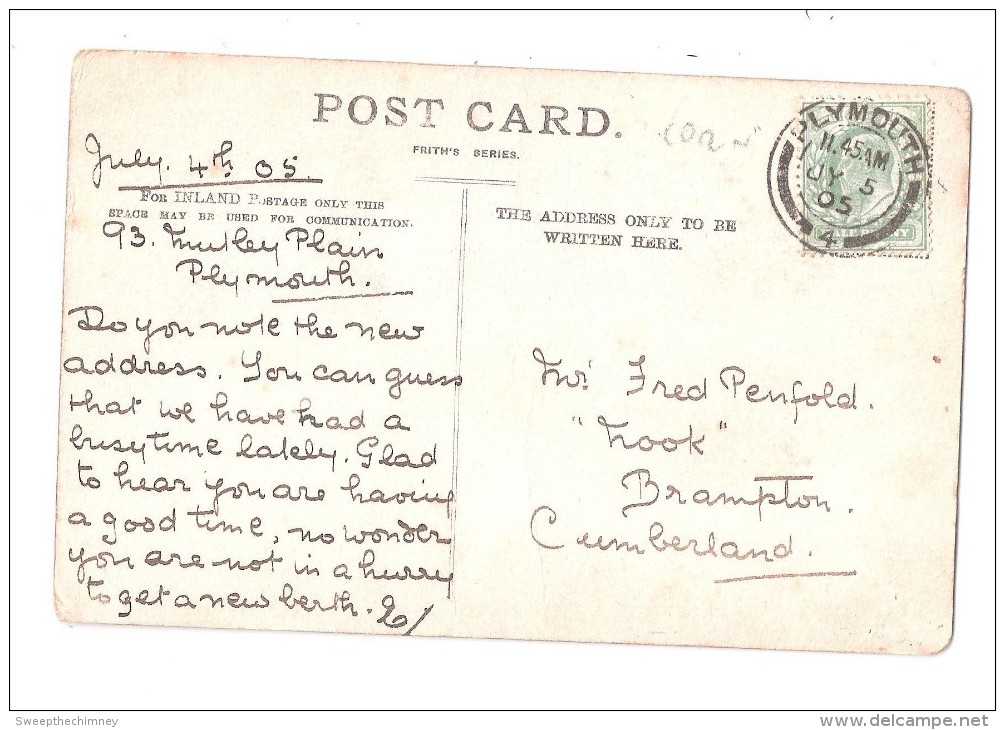 POST CARD.
FRITH'S SERIES.
July. 4th 05.
FOR INLAND POSTAGE ONLY THIS
SPACE MAY BE USED FOR COMMUNICATION.
93. Mutley Plain
Plymouth.
Do you note the new
address. You can guess
that we have had a
busy time lately. Glad
to hear you are having
a good time, no wonder
you are not in a hurry
to get a new berth.
THE ADDRESS ONLY TO BE
WRITTEN HERE.
PLYMOUTH
11.45AM
JY 5
05
4
Mr. Fred Penfold.
"Nook"
Brampton.
Cumberland.
Sweepthechimney
www.delcampe.net